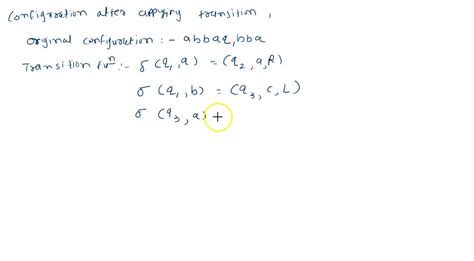 Configuration after applying transition,
original configuration :- abbaq,bba
Transition fuⁿ :- σ (q₁,a) = (q₂,a,R)
σ (q₁,b) = (q₃,c,L)
σ (q₃,a)